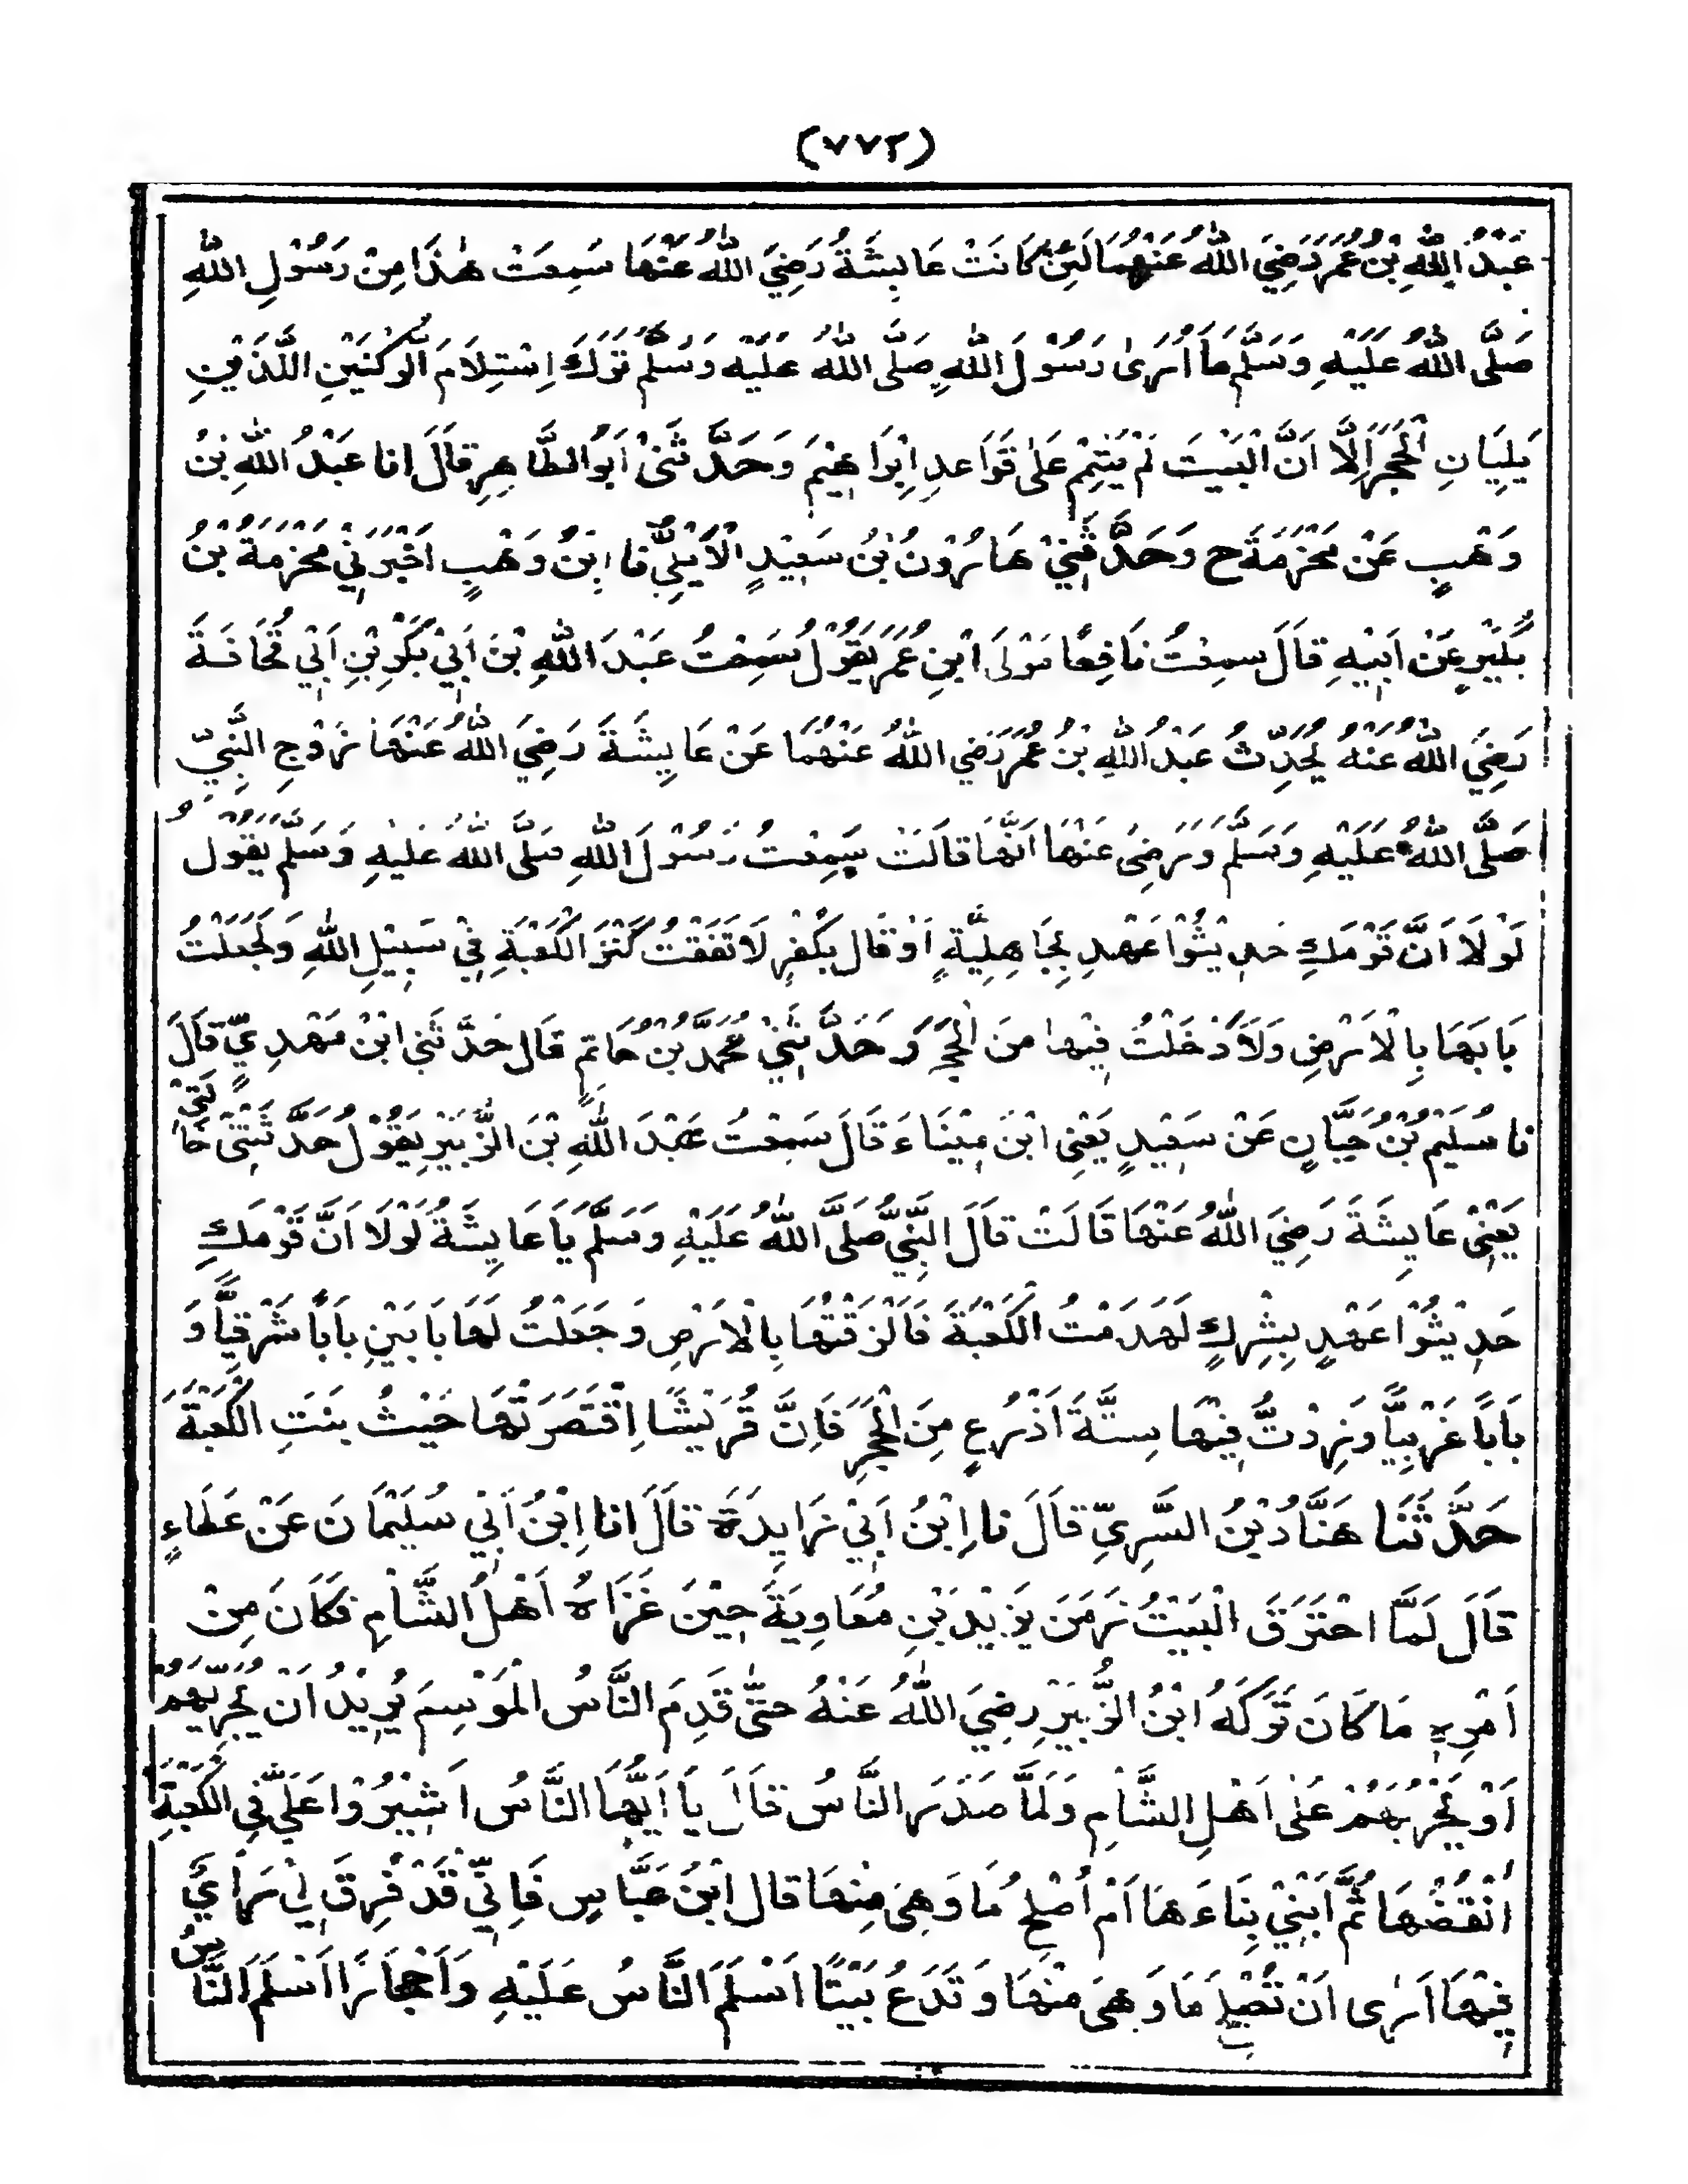 (٧٧٢)
عَبْدُ اللّٰهِ بْنُ عُمَرَ رَضِيَ اللّٰهُ عَنْهُمَا لَئِنْ كَانَتْ عَايِشَةُ رَضِيَ اللّٰهُ عَنْهَا سَمِعَتْ هٰذَا مِنْ رَسُوْلِ اللّٰهِ
صَلَّى اللّٰهُ عَلَيْهِ وَسَلَّمَ مَا اُرٰى رَسُوْلَ اللّٰهِ صَلَّى اللّٰهُ عَلَيْهِ وَسَلَّمَ تَرَكَ اِسْتِلَامَ الرُّكْنَيْنِ اللَّذَيْنِ
يَلِيَانِ الْحَجَرَ اِلَّا اَنَّ الْبَيْتَ لَمْ يَتِمَّ عَلٰى قَوَاعِدِ اِبْرَاهِيْمَ وَحَدَّثَنِىْ اَبُو الطَّاهِرِ قَالَ انا عَبْدُ اللّٰهِ بْنُ
وَهْبٍ عَنْ مَخْرَمَةَ ح وَحَدَّثَنِيْ هَارُوْنُ بْنُ سَعِيْدٍ الْاَيْلِيُّ نا ابْنُ وَهْبٍ اَخْبَرَنِيْ مَخْرَمَةُ بْنُ
بُكَيْرٍ عَنْ اَبِيْهِ قَالَ سَمِعْتُ نَافِعًا مَوْلَى ابْنِ عُمَرَ يَقُوْلُ سَمِعْتُ عَبْدَ اللّٰهِ بْنَ اَبِيْ بَكْرِ بْنِ اَبِيْ قُحَافَةَ
رَضِيَ اللّٰهُ عَنْهُ يُحَدِّثُ عَبْدَ اللّٰهِ بْنُ عُمَرَ رَضِي اللّٰهُ عَنْهُمَا عَنْ عَايِشَةَ رَضِيَ اللّٰهُ عَنْهَا زَوْجِ النَّبِيِّ
صَلَّى اللّٰهُ عَلَيْهِ وَسَلَّمَ وَرَضِىَ عَنْهَا اَنَّهَا قَالَتْ سَمِعْتُ رَسُوْلَ اللّٰهِ صَلَّى اللّٰهُ عَلَيْهِ وَسَلَّمَ يَقُوْلُ
لَوْلَا اَنَّ قَوْمَكِ حَدِيْثُوْا عَهْدٍ بِجَاهِلِيَّةٍ اَوْ قَالَ بِكُفْرٍ لَاَنْفَقْتُ كَنْزَ الْكَعْبَةِ فِيْ سَبِيْلِ اللّٰهِ وَلَجَعَلْتُ
بَابَهَا بِالْاَرْضِ وَلَاَدْخَلْتُ فِيْهَا مِنَ الْحَجَرِ وَحَدَّثَنِيْ مُحَمَّدُ بْنُ حَاتِمٍ قَالَ حَدَّثَنِى ابْنُ مَهْدِيٍّ قَالَ
نا سُلَيْمُ بْنُ حَيَّانٍ عَنْ سَعِيْدٍ يَعْنِى ابْنَ مِيْنَاءَ قَالَ سَمِعْتُ عَبْدَ اللّٰهِ بْنَ الزُّبَيْرِ يَقُوْلُ حَدَّثَتْنِىْ خَالَتِيْ
يَعْنِىْ عَايِشَةَ رَضِيَ اللّٰهُ عَنْهَا قَالَتْ قَالَ النَّبِيُّ صَلَّى اللّٰهُ عَلَيْهِ وَسَلَّمَ يَا عَايِشَةُ لَوْلَا اَنَّ قَوْمَكِ
حَدِيْثُوْا عَهْدٍ بِشِرْكٍ لَهَدَمْتُ الْكَعْبَةَ فَاَلْزَقْتُهَا بِالْاَرْضِ وَجَعَلْتُ لَهَا بَابَيْنِ بَابًا شَرْقِيًّا وَ
بَابًا غَرْبِيًّا وَزِدْتُّ فِيْهَا سِتَّةَ اَذْرُعٍ مِنَ الْحَجَرِ فَاِنَّ قُرَيْشًا اِقْتَصَرَتْهَا حَيْثُ بَنَتِ الْكَعْبَةَ
حَدَّثَنَا هَنَّادُ بْنُ السَّرِيِّ قَالَ نا اِبْنُ اَبِيْ زَايِدَةَ قَالَ انا اِبْنُ اَبِيْ سُلَيْمَانَ عَنْ عَطَاءٍ
قَالَ لَمَّا احْتَرَقَ الْبَيْتُ زَمَنَ يَزِيْدَ بْنِ مُعَاوِيَةَ حِيْنَ غَزَاهُ اَهْلُ الشَّامِ فَكَانَ مِنْ
اَمْرِهٖ مَا كَانَ تَرَكَهُ ابْنُ الزُّبَيْرِ رَضِيَ اللّٰهُ عَنْهُ حَتّٰى قَدِمَ النَّاسُ الْمَوْسِمَ يُرِيْدُ اَنْ يُجَرِّيَهُمْ
اَوْ يُحَرِّبَهُمْ عَلٰى اَهْلِ الشَّامِ وَلَمَّا صَدَرَ النَّاسُ قَالَ يَا اَيُّهَا النَّاسُ اَشِيْرُوْا عَلَيَّ فِى الْكَعْبَةِ
اَنْقُضُهَا ثُمَّ اَبْنِيْ بِنَاءَهَا اَمْ اُصْلِحُ مَا وَهِىَ مِنْهَا قَالَ ابْنُ عَبَّاسٍ فَاِنِّيْ قَدْ فُرِقَ لِيْ رَاْيٌ
فِيْهَا اَرٰى اَنْ تُصْلِحَ مَا وَهِىَ مِنْهَا وَتَدَعُ بَيْتًا اَسْلَمَ النَّاسُ عَلَيْهِ وَاَحْجَارًا اَسْلَمَ النَّاسُ